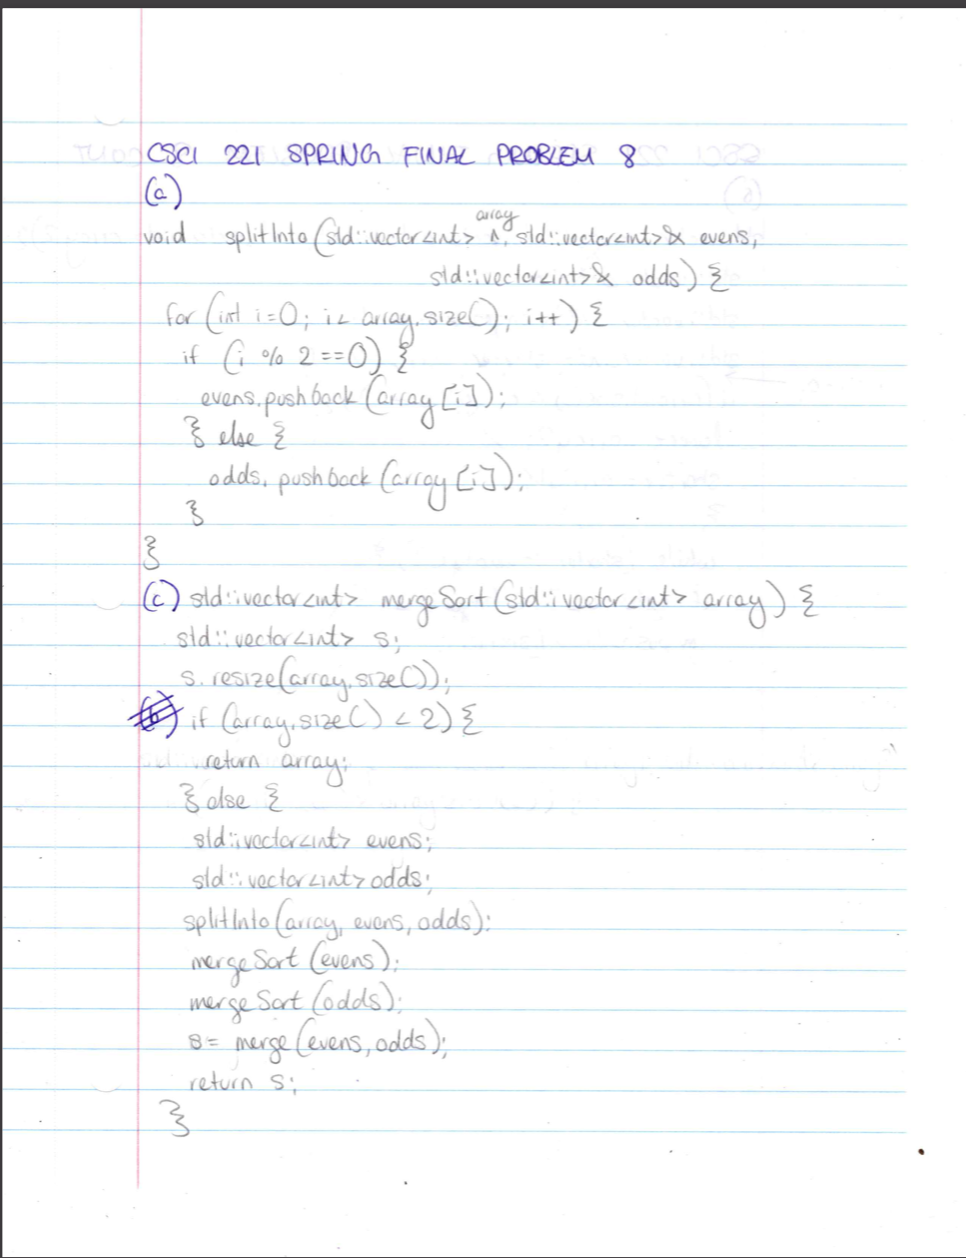 CSCI 221 SPRING FINAL PROBLEM 8
(a)
array
void splitInto (std::vector<int> ^, std::vector<int>& evens,
std::vector<int>& odds) {
for (int i=0; i< array.size(); i++) {
if (i % 2 ==0) {
evens.pushback (array [i]);
} else {
odds. pushback (array [i]);
}
}
(c) std::vector<int> mergeSort (std::vector<int> array) {
std::vector<int> s;
s. resize(array.size());
if (array.size() < 2) {
return array;
} else {
std::vector<int> evens;
std::vector<int> odds;
splitInto (array, evens, odds);
mergeSort (evens);
mergeSort (odds);
s= merge (evens, odds);
return s;
}